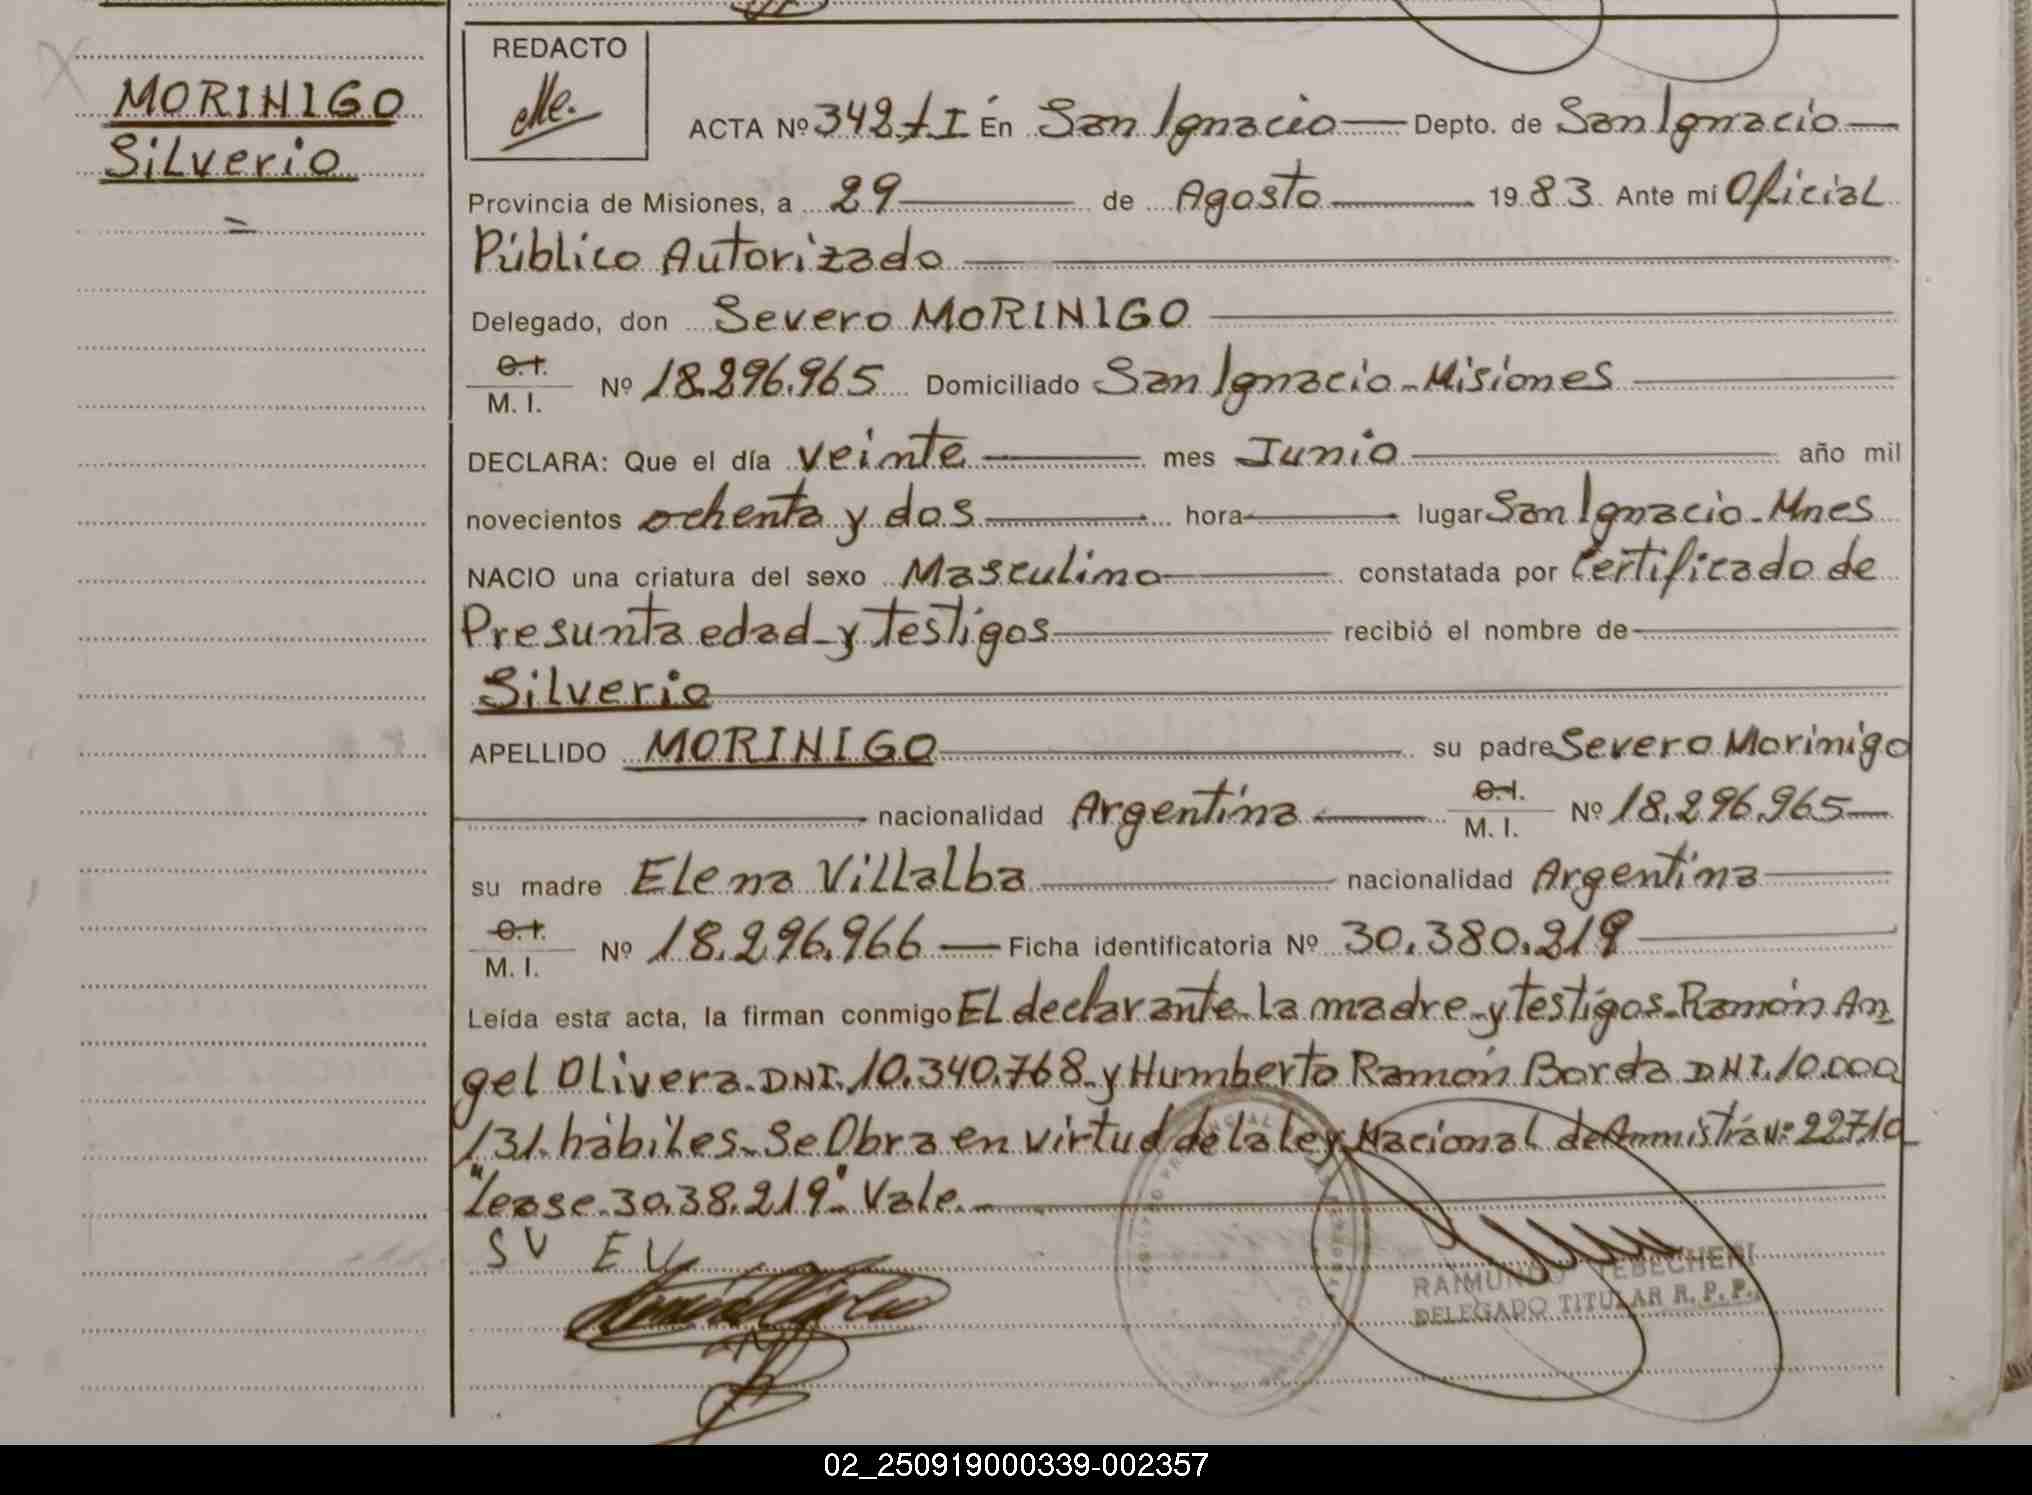 MORINIGO
Silverio
=
REDACTO
ACTA Nº 342 tI En San Ignacio — Depto. de San Ignacio —
Provincia de Misiones, a 29 — de Agosto — 1983. Ante mi Oficial
Público Autorizado —
Delegado, don Severo MORINIGO —
C.I.
M. I. Nº 18.296.965 Domiciliado San Ignacio - Misiones —
DECLARA: Que el día veinte — mes Junio — año mil
novecientos ochenta y dos — hora — lugar San Ignacio - Mnes
NACIO una criatura del sexo Masculino — constatada por Certificado de
Presunta edad - y testigos — recibió el nombre de —
Silverio —
APELLIDO MORINIGO — su padre Severo Morinigo
— nacionalidad Argentina — C.I.
M. I. Nº 18.296.965 —
su madre Elena Villalba — nacionalidad Argentina —
C.I.
M. I. Nº 18.296.966 — Ficha identificatoria Nº 30.380.219 —
Leída esta acta, la firman conmigo EL declarante - La madre - y testigos - Ramón An
gel Olivera - DNI. 10.340.768 - y Humberto Ramón Borda DNI. 10.000
131. hábiles - Se Obra en virtud de la Ley Nacional de Amnistía Nº 22710
"Lease - 30.38.219" Vale. —
S V E V
RAIMUNDO
DELEGADO TITULAR R. P. P.
02_250919000339-002357